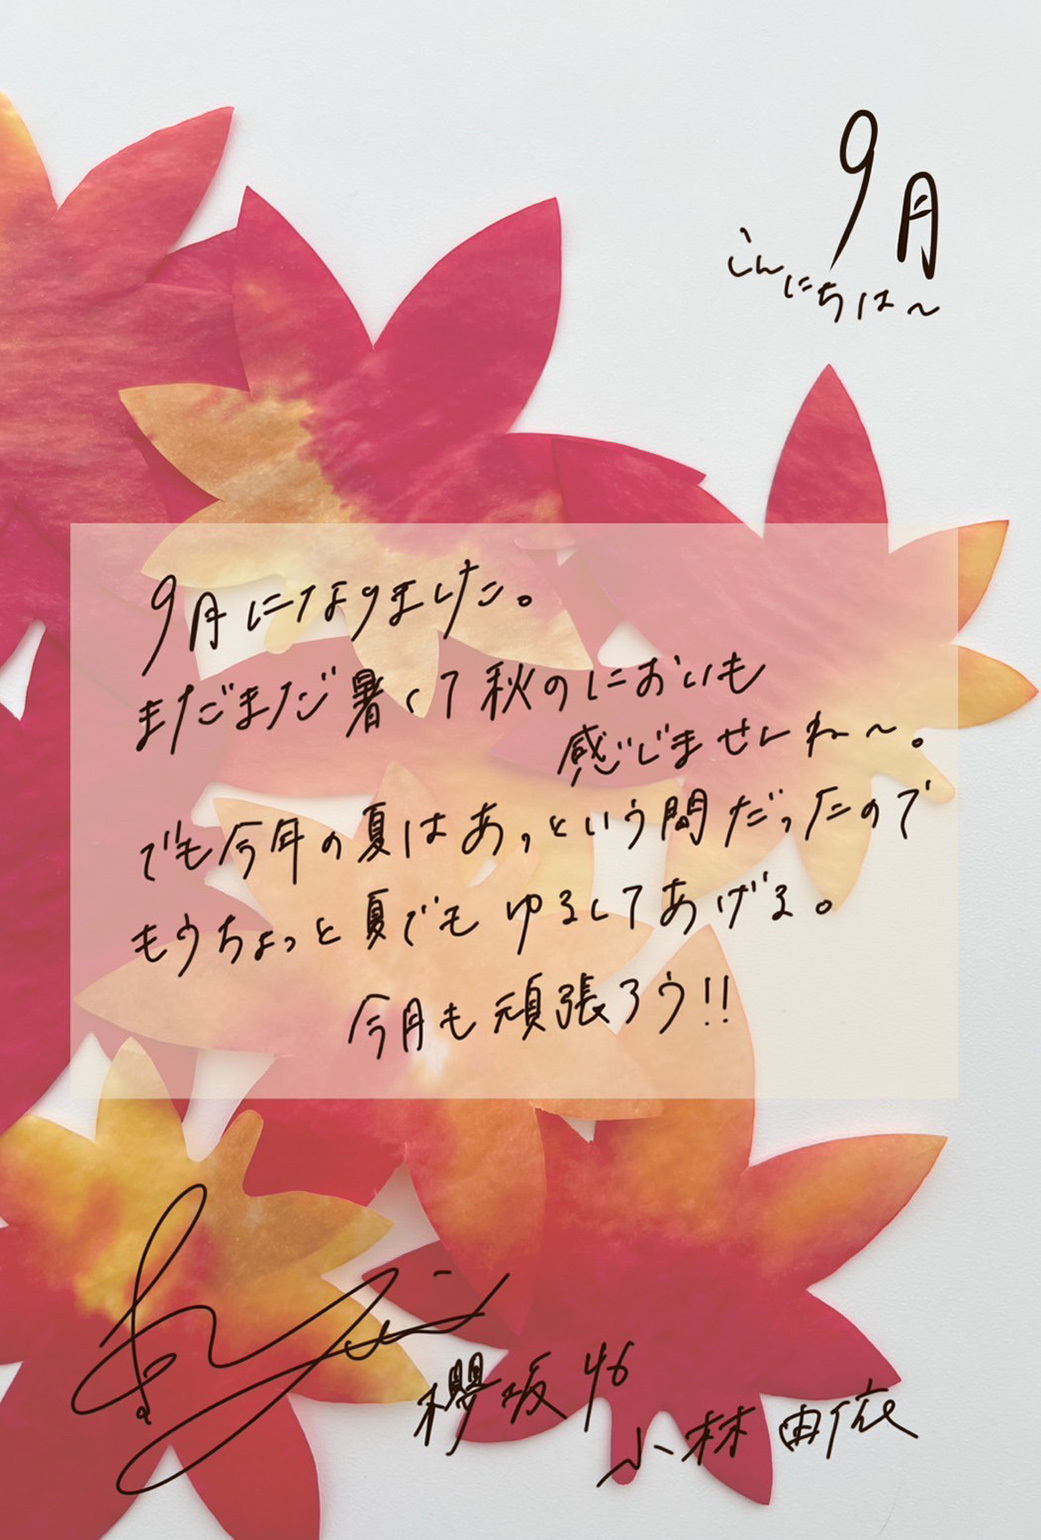 9月
こんにちは〜
9月になりました。
まだまだ暑くて秋のにおいも
感じませんね〜。
でも今年の夏はあっという間だったので
もうちょっと夏でもゆるしてあげる。
今月も頑張ろう!!
櫻坂46
小林由依